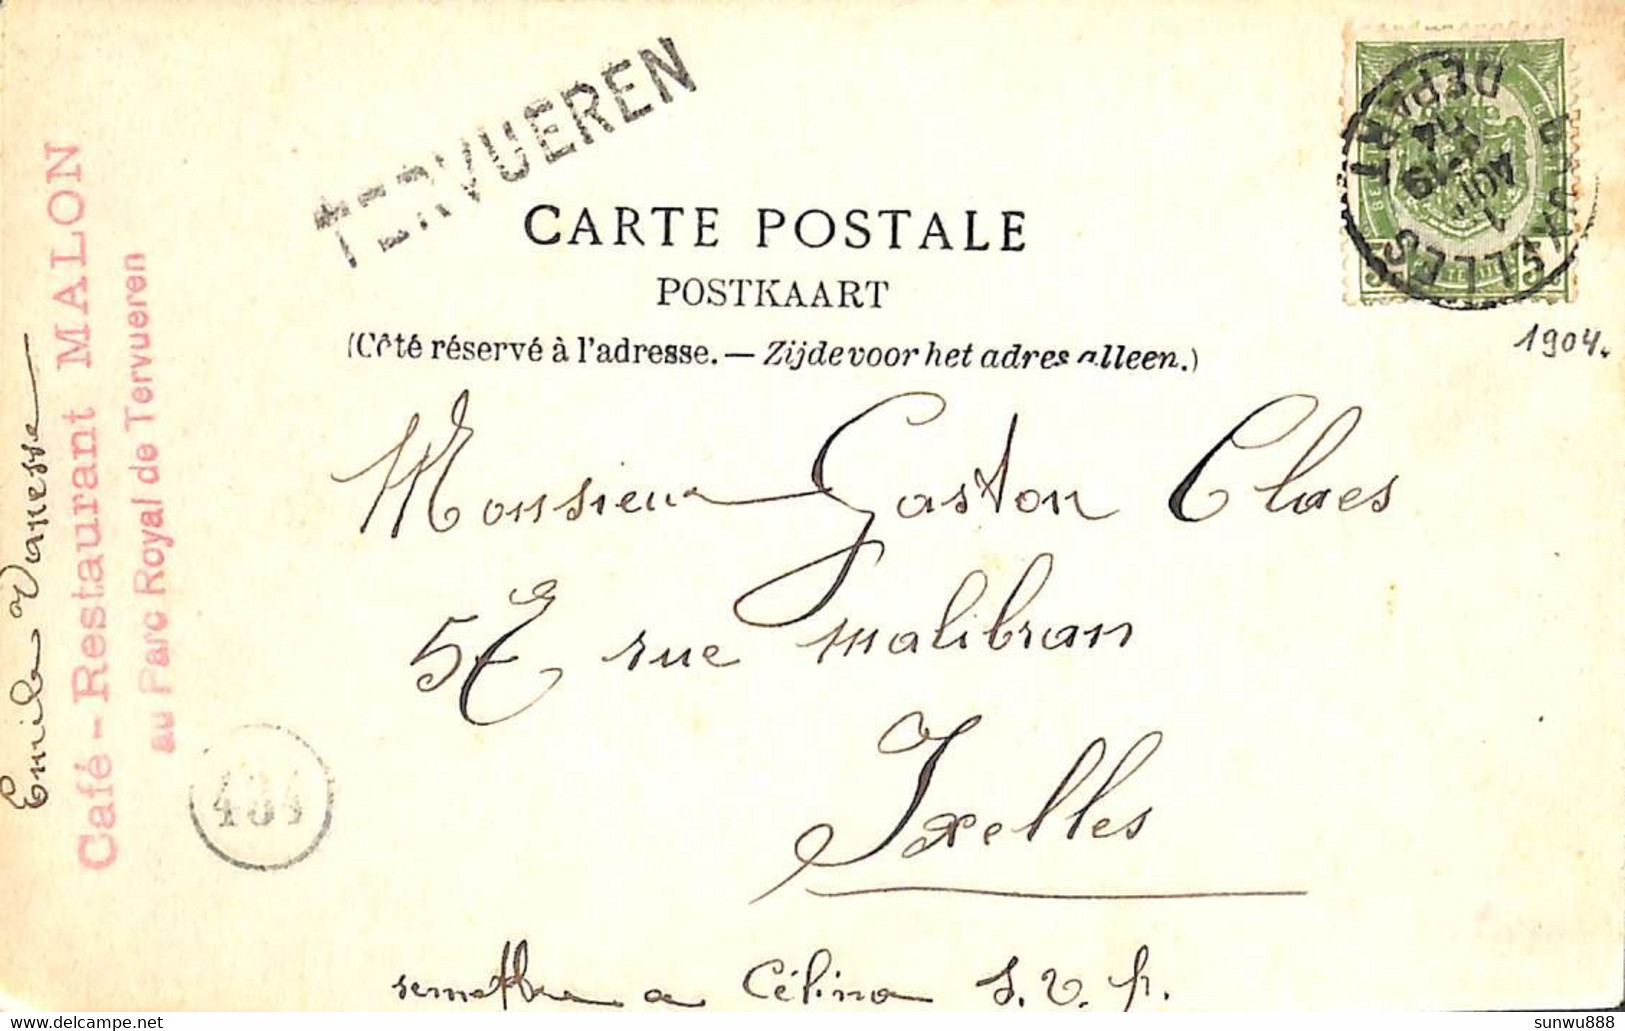 TERVUEREN
CARTE POSTALE
POSTKAART
(Côté réservé à l'adresse. — Zijde voor het adres alleen.)
BRUXELLES
DEPART
1 AOUT
19
04
1904.
Monsieur Gaston Claes
rue malibran
Ixelles
remettre a Célina S. V. P.
Café-Restaurant MALON
au Parc Royal de Tervueren
434
sunwu888